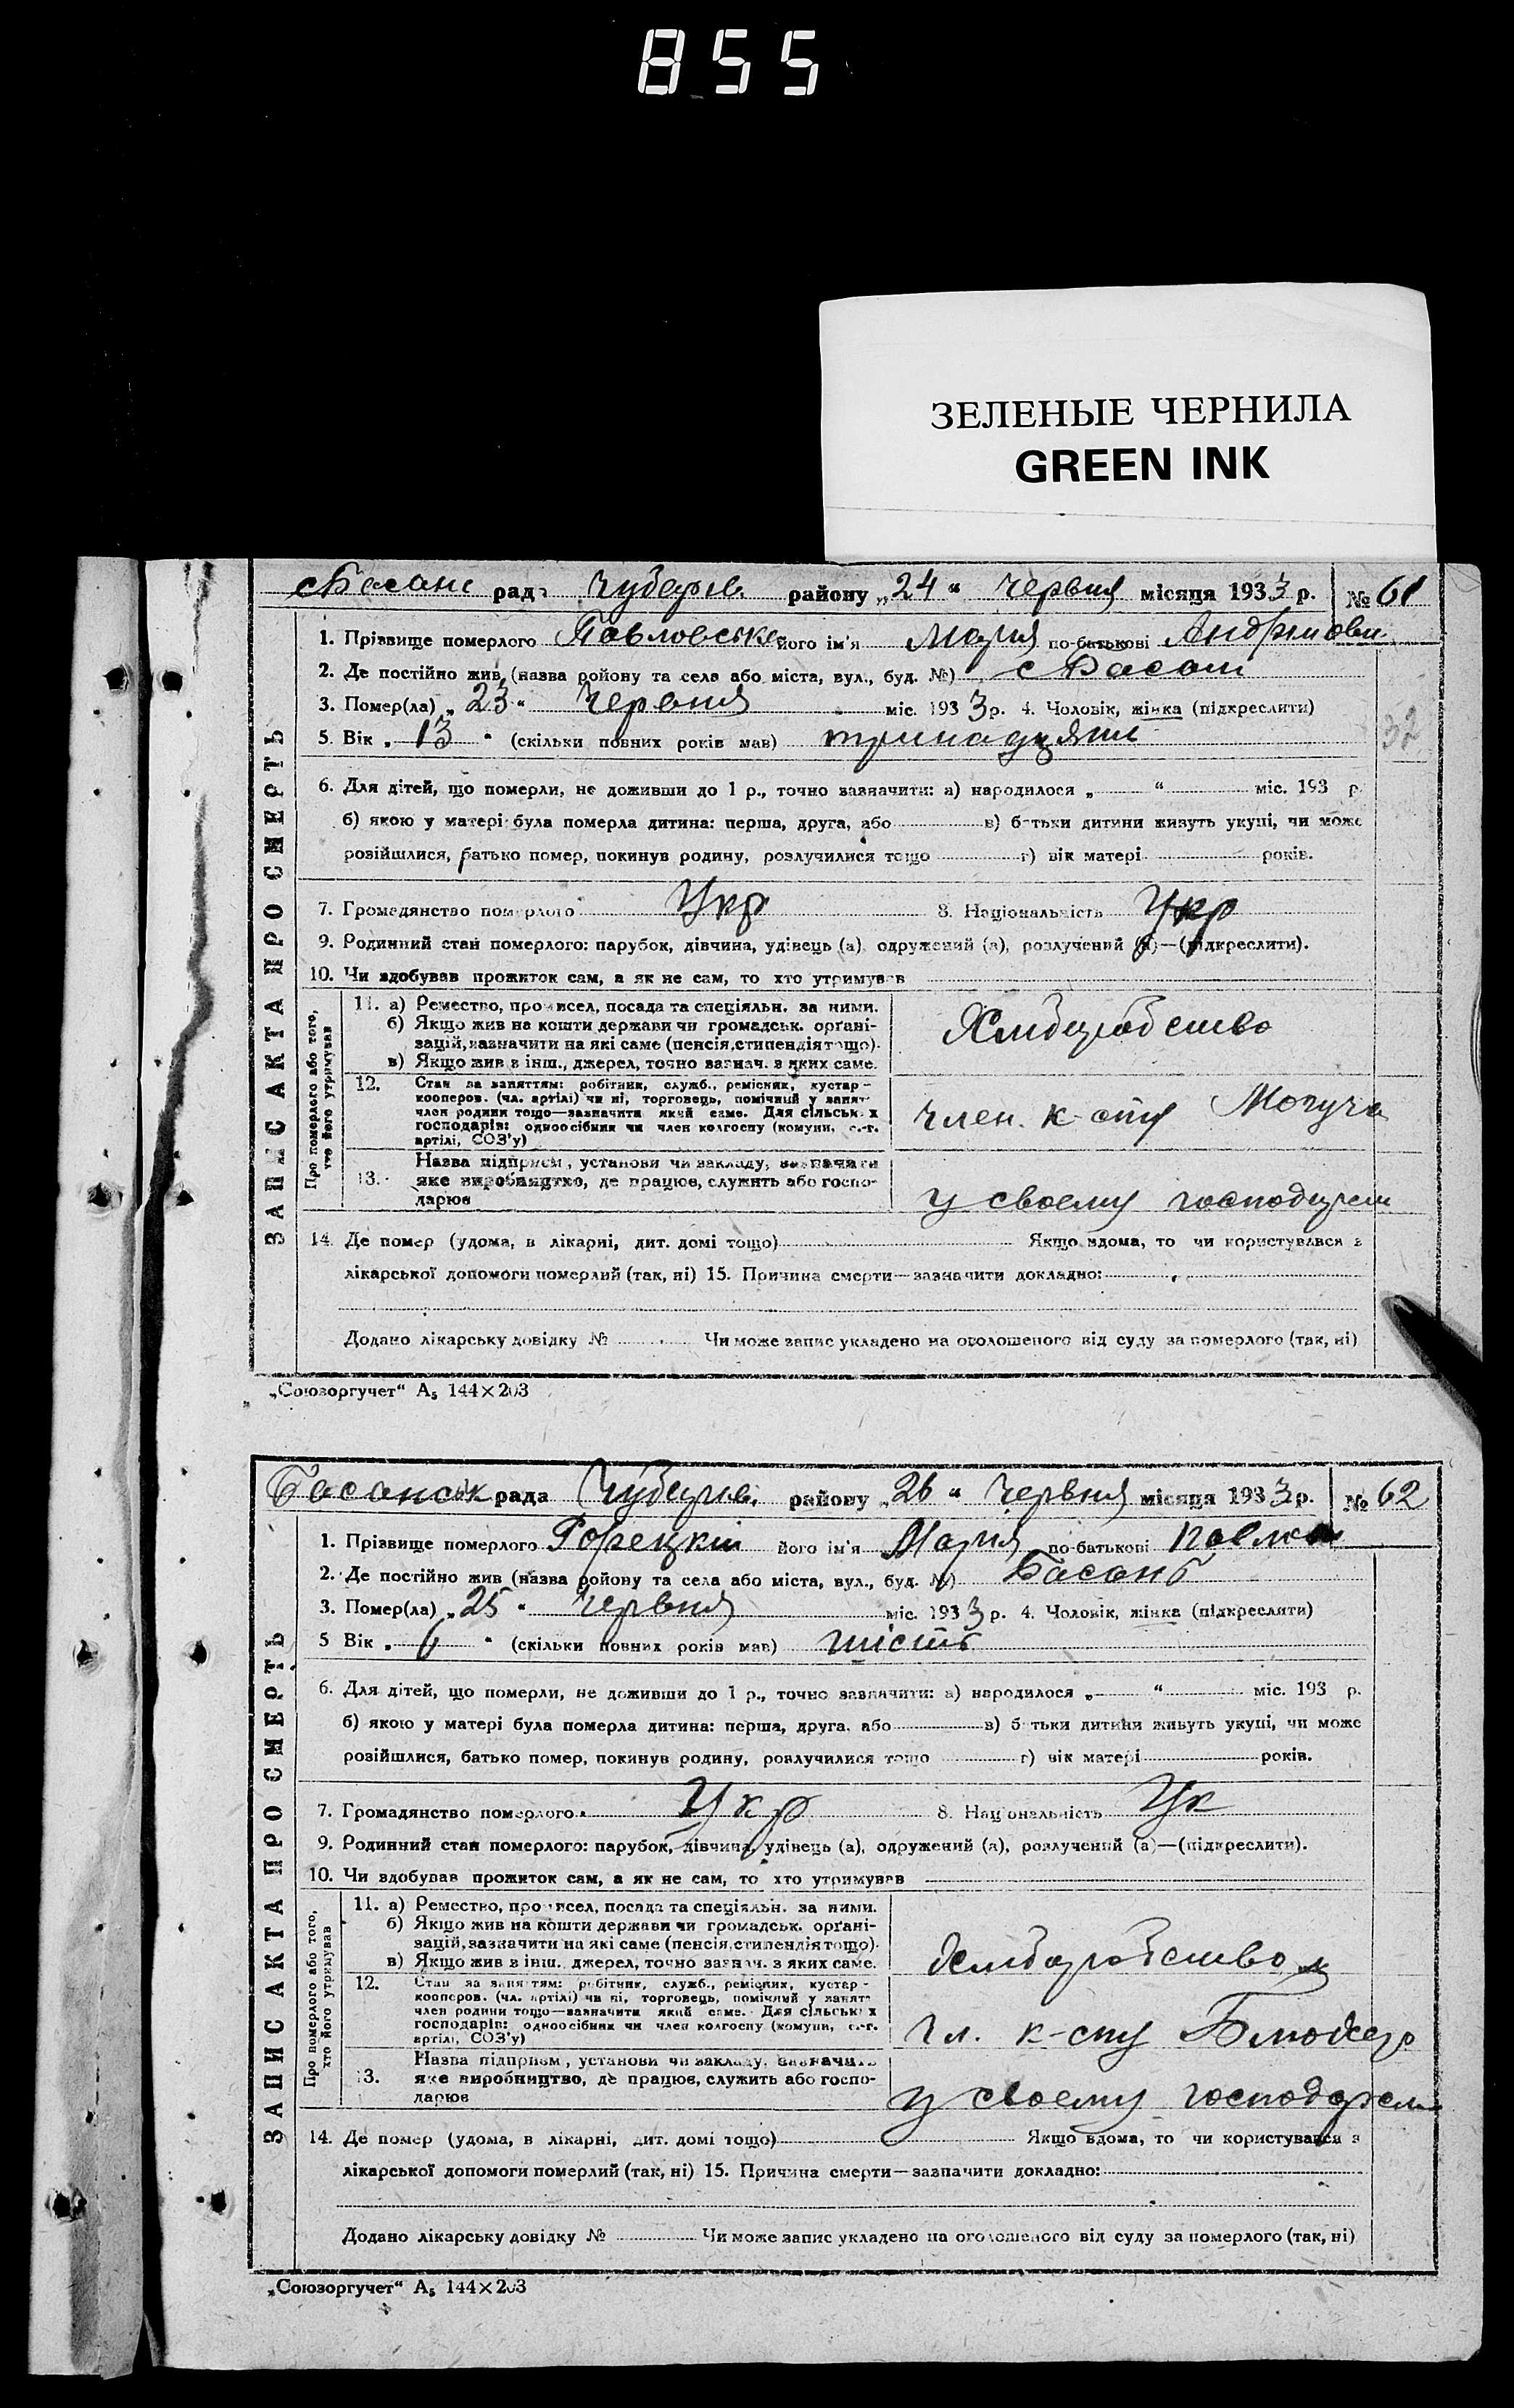 855
ЗЕЛЕНЫЕ ЧЕРНИЛА
GREEN INK
рада района „24“ Червня місяця 1933 р. № 61
1. Прізвище померлого Павловська його ім'я Мария по-батькові
2. Де постійно жив (назва району та села або міста, вул., буд. №) с Басань
3. Помер(ла) „23“ Червня міс. 1933 р. 4. Чоловік, жінка (підкреслити)
5. Вік „13“ (скільки повних років мав) тринадцять
6. Для дітей, що померли, не доживши до 1 р., точно зазначити: а) народилося „ “ міс. 193 р.
б) якою у матері була померла дитина: перша, друга, або в) батьки дитини живуть укупі, чи може
розійшлися, батько помер, покинув родину, розлучилися тощо г) вік матері років.
7. Громадянство померлого Укр 8. Національність Укр
9. Родинний стан померлого: парубок, дівчина, удівець (а), одружений (а), розлучений (а)—(підкреслити).
10. Чи здобував прожиток сам, а як не сам, то хто утримував
Про померлого або того, хто його утримував
11. а) Ремество, промисел, посада та спеціяльн. за ними.
б) Якщо жив на кошти держави чи громадськ. орґані-
зацій, зазначити на які саме (пенсія, стипендія тощо).
в) Якщо жив з інш., джерел, точно зазнач. з яких саме.
12. Стан за заняттям: робітник, служб., ремісник, кустар-
кооперов. (чл. артілі) чи ні, торговець, помічний у занят.
член родини тощо—зазначити який саме. Для сільськ х
господарів: одноосібник чи член колгоспу (комуни, с.-г.
артілі, СОЗ'у)
член. к-спу Могуча
Назва підприєм, установи чи закладу, зазначити
13. яке виробництво, де працює, служить або госпо-
дарює
у своему
14. Де помер (удома, в лікарні, дит. домі тощо) Якщо вдома, то чи користувався з
лікарської допомоги померлий (так, ні) 15. Причина смерти—зазначити докладно:
Додано лікарську довідку № Чи може запис укладено на оголошеного від суду за померлого (так, ні)
ЗАПИС АКТА ПРО СМЕРТЬ
32
„Союзоргучет“ А₅ 144×203
Басанськ рада району „26“ Червня місяця 1933 р. № 62
1. Прізвище померлого його ім'я Мария по-батькові
2. Де постійно жив (назва району та села або міста, вул., буд. №) Басань
3. Помер(ла) „25“ Червня міс. 1933 р. 4. Чоловік, жінка (підкреслити)
5 Вік „6“ (скільки повних років мав) шість
6. Для дітей, що померли, не доживши до 1 р., точно зазначити: а) народилося „ “ міс. 193 р.
б) якою у матері була померла дитина: перша, друга, або в) батьки дитини живуть укупі, чи може
розійшлися, батько помер, покинув родину, розлучилися тощо г) вік матері років.
7. Громадянство померлого Укр 8. Національність Ук
9. Родинний стан померлого: парубок, дівчина, удівець (а), одружений (а), розлучений (а)—(підкреслити).
10. Чи здобував прожиток сам, а як не сам, то хто утримував
Про померлого або того, хто його утримував
11. а) Ремество, промисел, посада та спеціяльн. за ними.
б) Якщо жив на кошти держави чи громадськ. орґані-
зацій, зазначити на які саме (пенсія, стипендія тощо).
в) Якщо жив з інш. джерел, точно зазнач. з яких саме.
12. Стан за заняттям: робітник, служб., ремісник, кустар-
кооперов. (чл. артілі) чи ні, торговець, помічний у занят.
член родини тощо—зазначити який саме. Для сільськ х
господарів: одноосібник чи член колгоспу (комуни, с.-г.
артілі, СОЗ'у)
чл. к-спу
Назва підприєм, установи чи закладу, зазначить
13. яке виробництво, де працює, служить або госпо-
дарює
у своему
14. Де помер (удома, в лікарні, дит. домі тощо) Якщо вдома, то чи користувався з
лікарської допомоги померлий (так, ні) 15. Причина смерти—зазначити докладно:
Додано лікарську довідку № Чи може запис укладено на оголошеного від суду за померлого (так, ні)
ЗАПИС АКТА ПРО СМЕРТЬ
„Союзоргучет“ А₅ 144×203